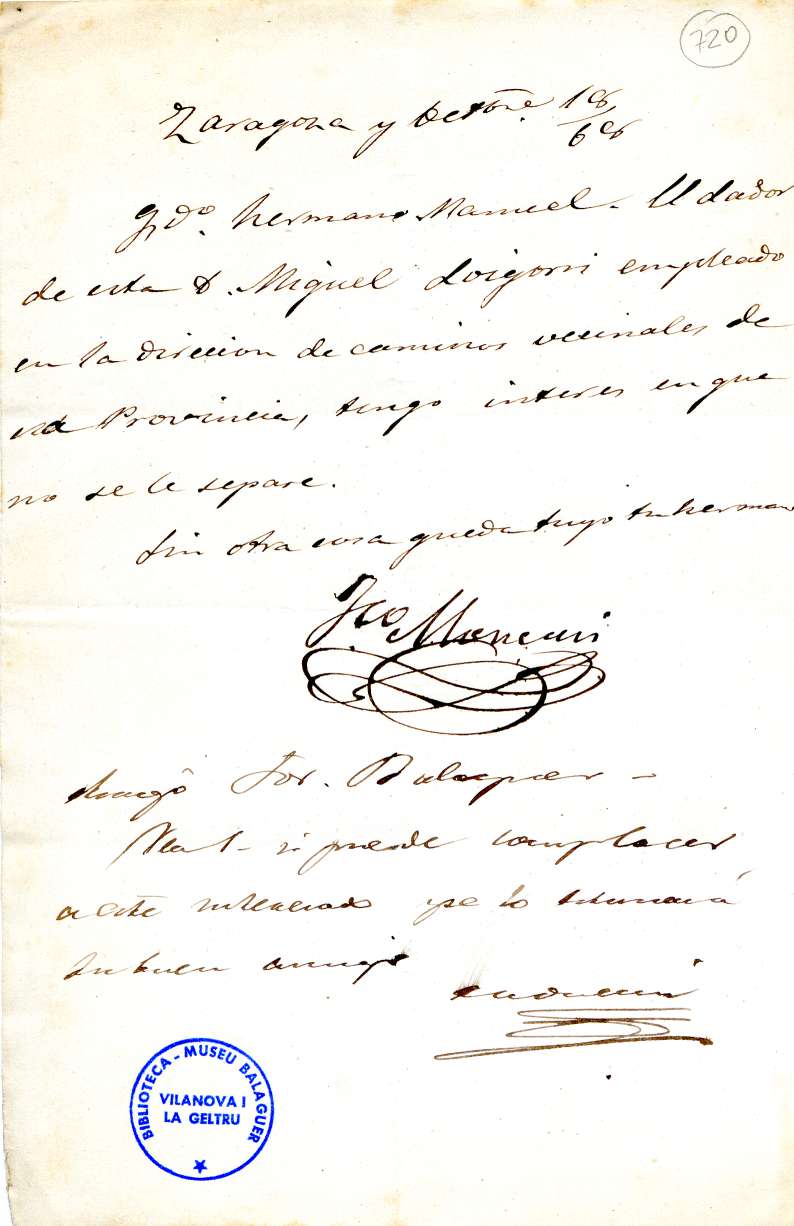 720
Zaragoza y Octbre. 18/68
Qdo. hermano Manuel. El dador
de esta D. Miguel Loigorri empleado
en la direccion de caminos vecinales de
esa Provincia, tengo interes en que
no se le separe.
Sin otra cosa queda tuyo tu hermano
Fco
Amigo Sor. Balaguer
Vea V. si puede complacer
a este interesado y se lo estimará
su buen amigo
BIBLIOTECA - MUSEU BALAGUER
VILANOVA I
LA GELTRU